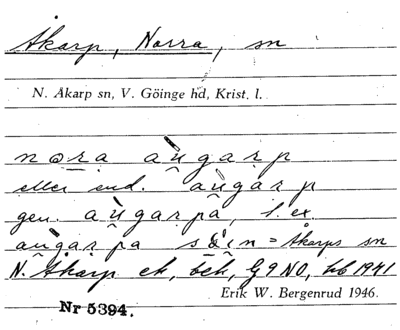 Åkarp, Norra, sn
N. Åkarp sn, V. Göinge hd, Krist. l.
nọra aùgarp
eller end. aùgarp
gen. aùgarpa, t. ex.
aùgarpa = Åkarps sn
N. Åkarp ek, bek, G9NO, bb 1941
Erik W. Bergenrud 1946.
Nr 5394.